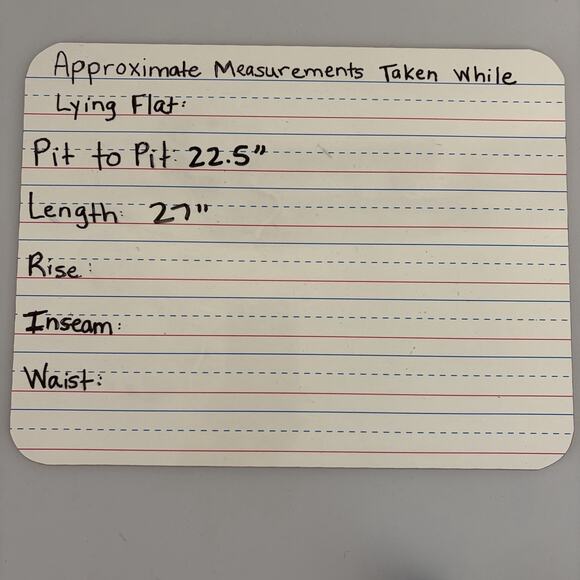 Approximate Measurements Taken While
Lying Flat:
Pit to Pit: 22.5"
Length: 27"
Rise:
Inseam:
Waist: